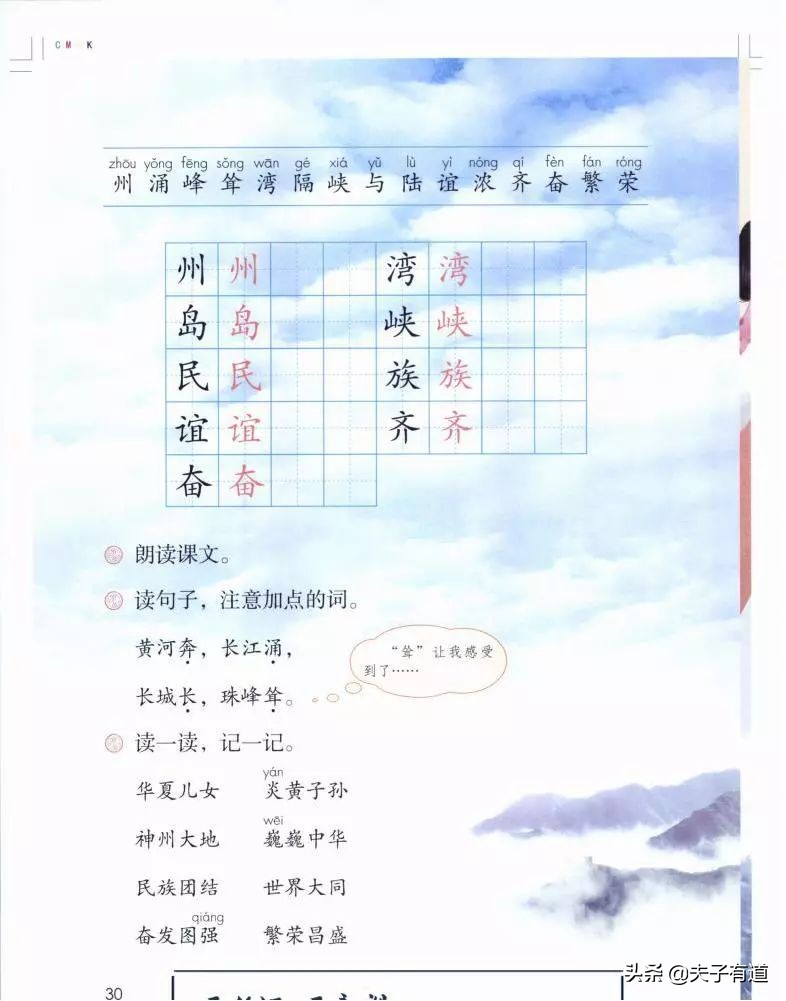 C M Y K
zhōu yǒng fēng sǒng wān gé xiá yǔ lù yì nóng qí fèn fán róng
州 涌 峰 耸 湾 隔 峡 与 陆 谊 浓 齐 奋 繁 荣
州 州 湾 湾
岛 岛 峡 峡
民 民 族 族
谊 谊 齐 齐
奋 奋
朗读课文。
读句子，注意加点的词。
黄河奔，长江涌，
长城长，珠峰耸。
“耸”让我感受
到了……
读一读，记一记。
yán
华夏儿女 炎黄子孙
wēi
神州大地 巍巍中华
民族团结 世界大同
qiáng
奋发图强 繁荣昌盛
30
头条 @夫子有道